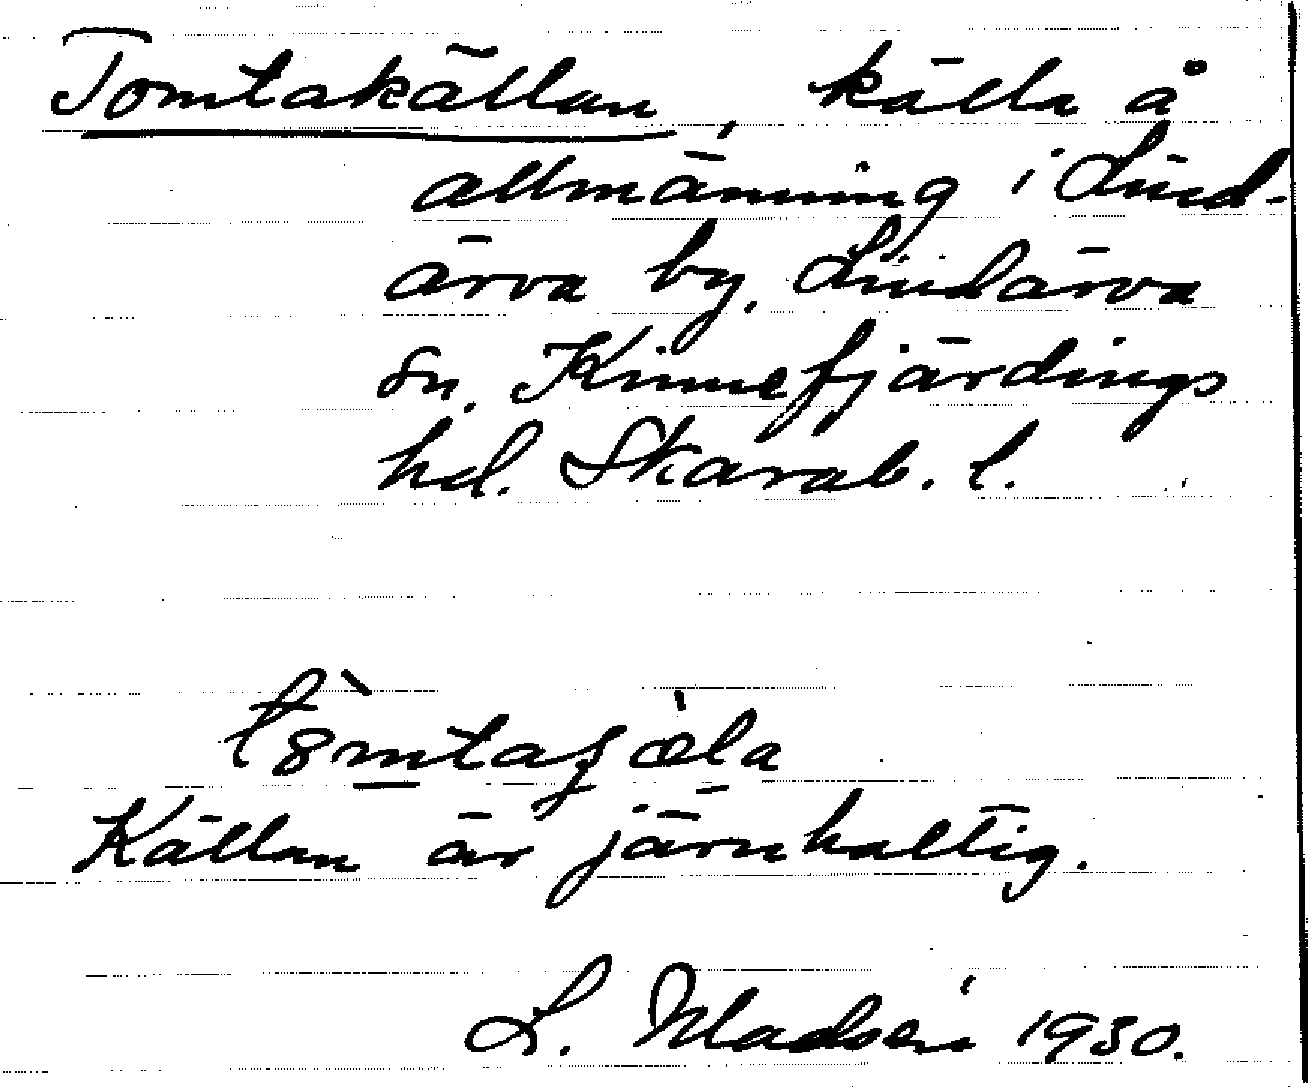 Tomtakällan, källa å
allmänning i Lind-
ärva by, Lindärva
sn, Kinnefjärdings
hd. Skarab. l.
Källan är järnhaltig.
L. Madsén 1930.